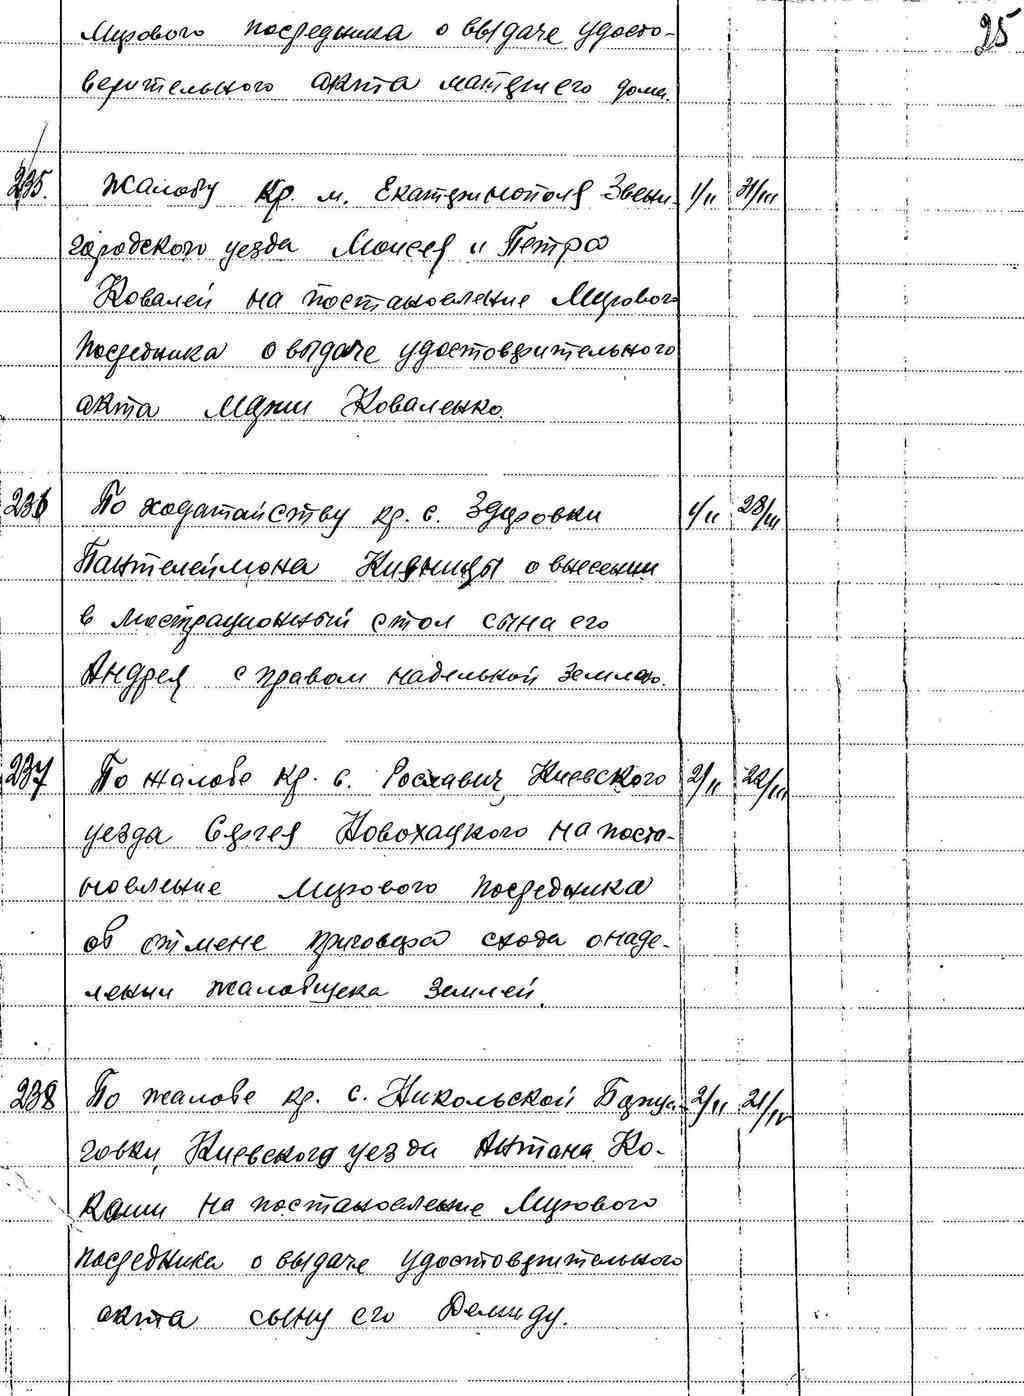 25
Мирового посредника о выдаче удосто-
верительного акта матери его дома.
235. Жалобу кр. м. Екатеринополя Звени- 1/II 31/III
городского уезда Моисея и Петра
Ковалей на постановление Мирового
Посредника о выдаче удостоверительного
акта Марии Коваленко.
236 По ходатайству кр. с. Здоровки 1/II 28/III
Пантелеймона о внесении
в люстрационный стол сына его
Андрея с правом надельной землею.
237 По жалобе кр. с. Рославич, Киевского 2/II 22/III
уезда Сергея Новохацкого на поста-
новление Мирового посредника
об отмене приговора схода о наде-
лении жалобщика землей.
238 По жалобе кр. с. Никольской Борща- 2/II 21/IV
говки, Киевского уезда Антона Ко-
на постановление Мирового
посредника о выдаче удостоверительного
акта сыну его Демиду.